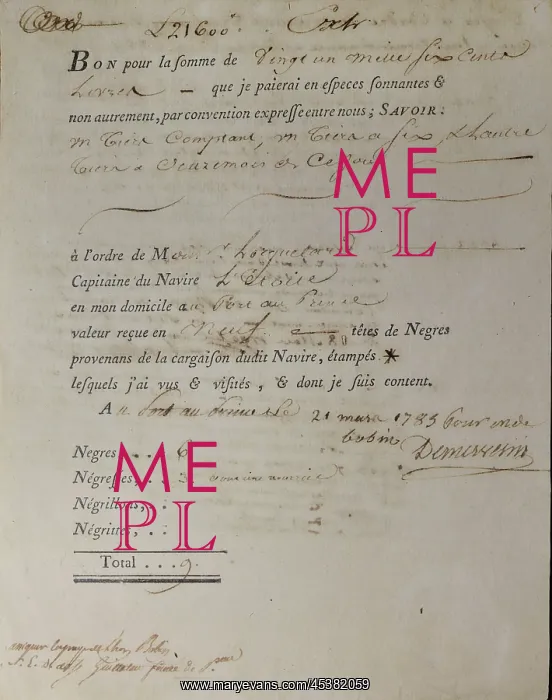 £21600#. . Extr
Bon pour la somme de Vingt un mille six cents
Livres — que je paierai en especes sonnantes &
non autrement, par convention expresse entre nous ; SAVOIR :
un tiers Comptant, un tiers a six, & l'autre
tiers a Douze mois de Ce jour
ME
PL
à l'ordre de M
Capitaine du Navire L'Etoile
en mon domicile au Port au Prince
valeur reçue en Neuf têtes de Negres
provenans de la cargaison dudit Navire, étampés *
lesquels j'ai vus & visités, & dont je suis content.
A u Port au Prince Le 21 mars 1785 Pour
Bobin
Negres . . . 6
ME
Négresses, . . 3
Négrillons, . .
PL
Négrittes, . .
Total . . . 9.
www.maryevans.com/45382059